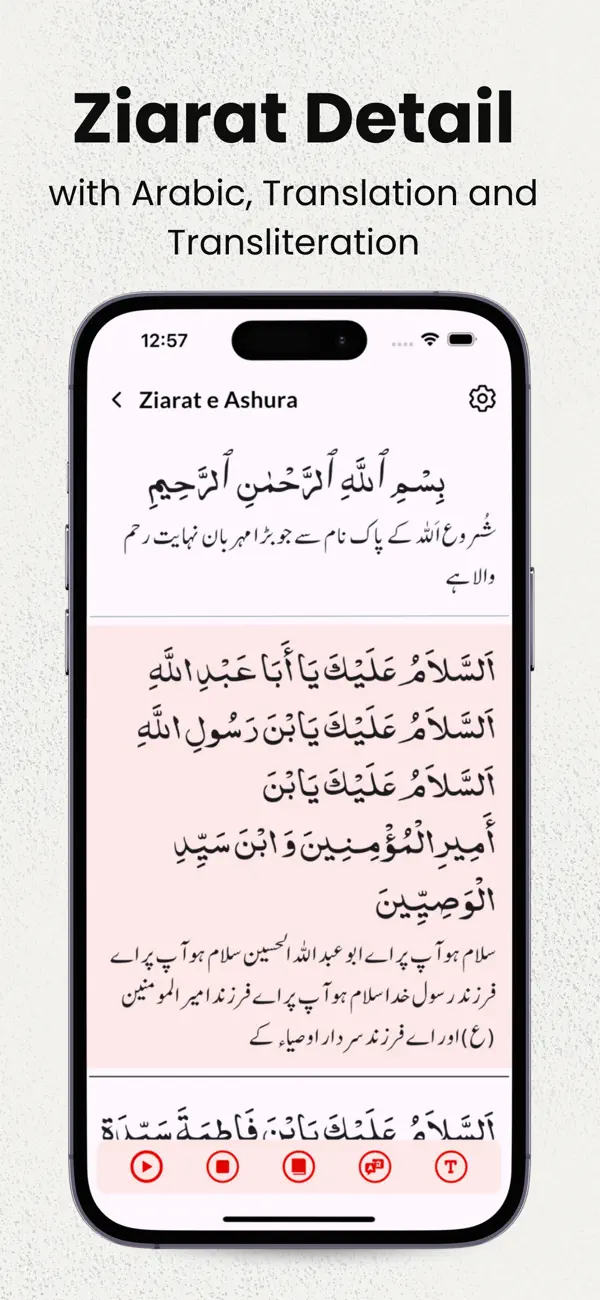 Ziarat Detail
with Arabic, Translation and
Transliteration
12:57
Ziarat e Ashura
بِسْمِ ٱللَّهِ ٱلرَّحْمَٰنِ ٱلرَّحِيمِ
شُروع اَللہ کے پاک نام سے جو بڑا مہر بان نہایت رحم
والا ہے
اَلسَّلاَمُ عَلَيْكَ يَا أَبَا عَبْدِ اللَّهِ
اَلسَّلاَمُ عَلَيْكَ يَابْنَ رَسُولِ اللَّهِ
اَلسَّلاَمُ عَلَيْكَ يَابْنَ
أَمِيرِ الْمُؤْمِنِينَ وَابْنَ سَيِّدِ
الْوَصِيِّينَ
سلام ہو آپ پر اے ابو عبد اللہ الحسین سلام ہو آپ پر اے
فرزند رسول خدا سلام ہو آپ پر اے فرزند امیر المومنین
(ع) اور اے فرزند سردار اوصیاء کے
اَلسَّلاَمُ عَلَيْكَ يَابْنَ فَاطِمَةَ سَيِّدَةِ
T